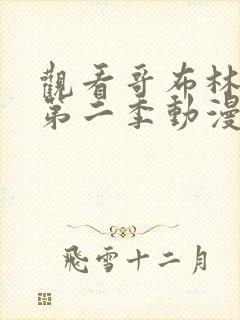 觀看哥布林
第二季動漫
飛雪十二月